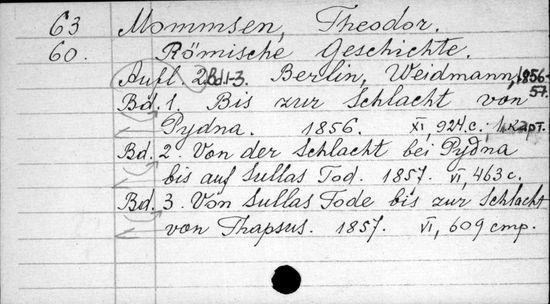 63 Mommsen, Theodor.
60. Römische Geschichte.
Aufl. 2 Bd.1-3. Berlin, Weidmann, 1856-
57.
Bd. 1. Bis zur Schlacht von
Pydna. 1856. XI, 924 c.; 1 карт.
Bd. 2. Von der Schlacht bei Pydna
bis auf Sullas Tod. 1857. VI, 463 c.
Bd. 3. Von Sullas Tode bis zur Schlacht
von Thapsus. 1857. VI, 609 cmp.